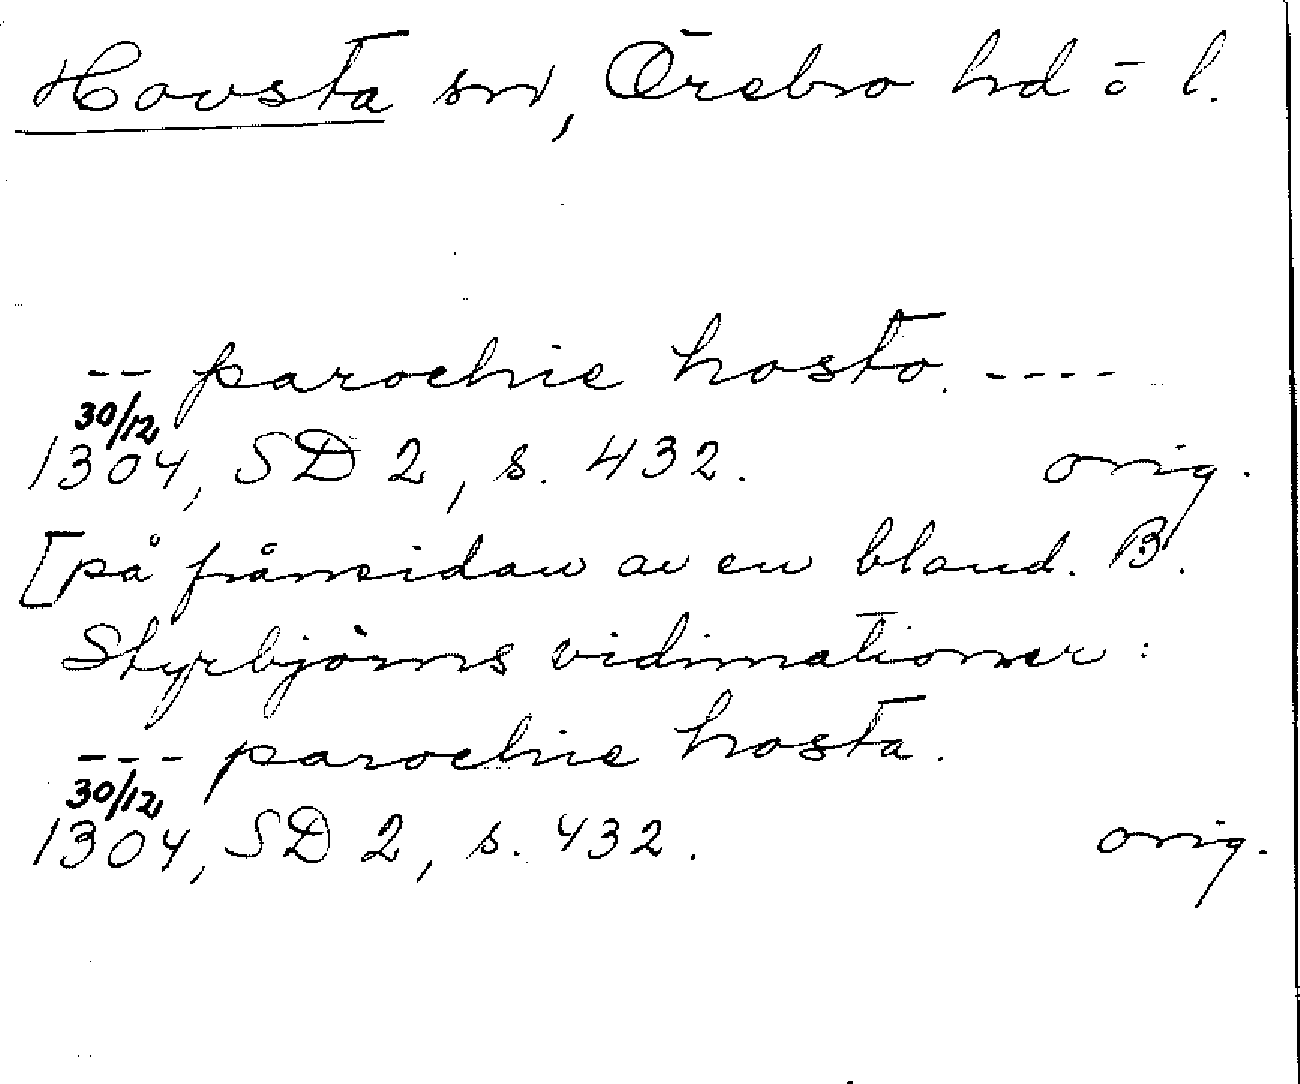 Hovsta sn, Örebro hd o l.
-- parochie hosto. ----
30/12
1304, SD 2, s. 432. orig.
[på främsidan av en bland. B.
Styrbjörns vidimationer:
--- parochie hosta.
30/12
1304, SD 2, s. 432. orig.